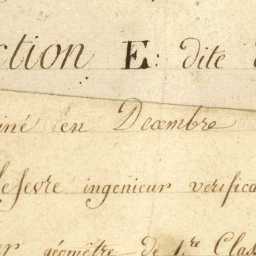 ction E: dite
iné en Decembre
Lefevre ingenieur verifica
géomètre de 1.re Clas